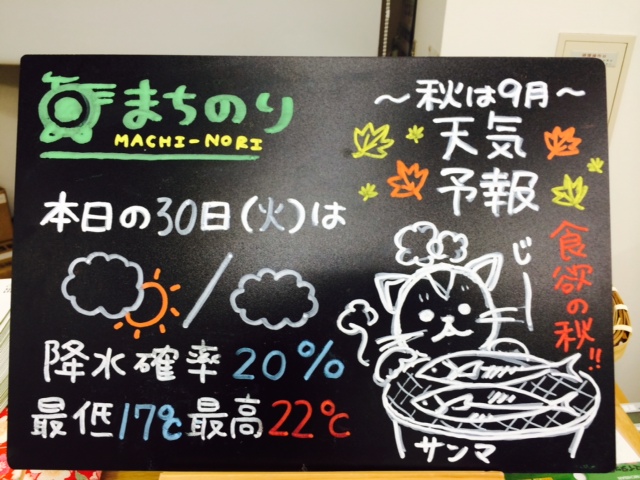 まちのり
MACHI-NORI
~秋は9月~
天気
予報
本日の30日(火)は
降水確率20%
最低17℃最高22℃
食欲の秋!!
じーっ
サンマ